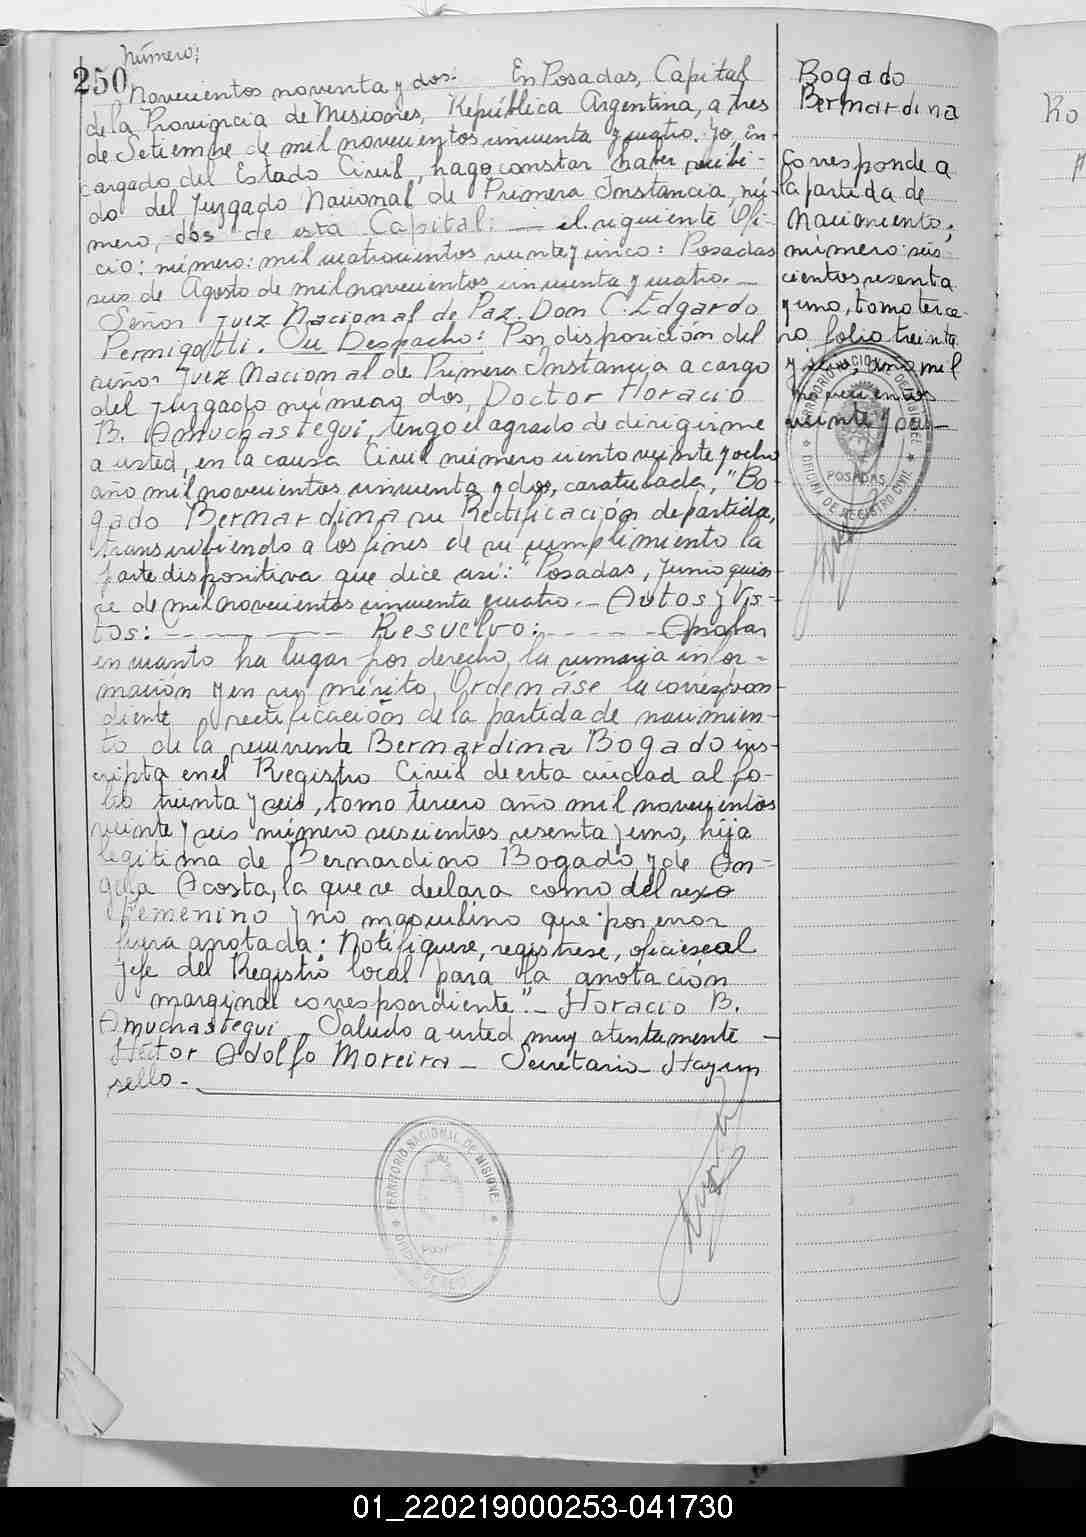 número:
250
Novecientos noventa y dos: En Posadas, Capital
de la Provincia de Misiones, República Argentina, a tres
de Setiembre de mil novecientos cincuenta y cuatro. Yo, En-
cargado del Estado Civil, hago constar haber recibi-
do del Juzgado Nacional de Primera Instancia, nú-
mero, dos de esta Capital: — el siguiente Ofi-
cio: número: mil cuatrocientos veinte y cinco: Posadas
seis de Agosto de mil novecientos cincuenta y cuatro. —
Señor Juez Nacional de Paz. Don C. Edgardo
Permigotti. Su Despacho: Por disposición del
señor Juez Nacional de Primera Instancia a cargo
del Juzgado número dos, Doctor Horacio
B. Amuchastegui, tengo el agrado de dirigirme
a usted, en la causa Civil número ciento veinte y ocho
año mil novecientos cincuenta y dos, caratulada, "Bo-
gado Bernardina su Rectificación de partida,
transcribiendo a los fines de su cumplimiento la
parte dispositiva que dice así: "Posadas, Junio quin-
ce de mil novecientos cincuenta cuatro. — Autos y Vis-
tos: — — — — Resuelvo: - - - - - Aprobar
en cuanto ha lugar por derecho, la sumaria infor-
mación y en su mérito, Ordenáse la correspon-
diente rectificación de la partida de nacimien-
to de la recurrente Bernardina Bogado ins-
cripta en el Registro Civil de esta ciudad al fo-
lio treinta y seis, tomo tercero año mil novecientos
veinte y seis número seiscientos sesenta y uno, hija
legítima de Bernardino Bogado y de An-
gela Acosta, la que se declara como del sexo
Femenino y no masculino que por error
fuera anotada: Notifíquese, regístrese, ofíciese al
Jefe del Registro local para la anotación
marginal correspondiente". — Horacio B.
Amuchastegui — Saludo a usted muy atentamente —
Héctor Adolfo Moreira — Secretario — Hay un
sello. —
Bogado
Bernardina
Corresponde a
la partida de
Nacimiento;
número: seis-
cientos sesenta
y uno, tomo terce-
ro folio treinta
y seis, año mil
novecientos
veinte y seis —
TERRITORIO NACIONAL DE MISIONES
POSADAS
OFICINA DE REGISTRO CIVIL
TERRITORIO NACIONAL DE MISIONES
Ro
01_220219000253-041730